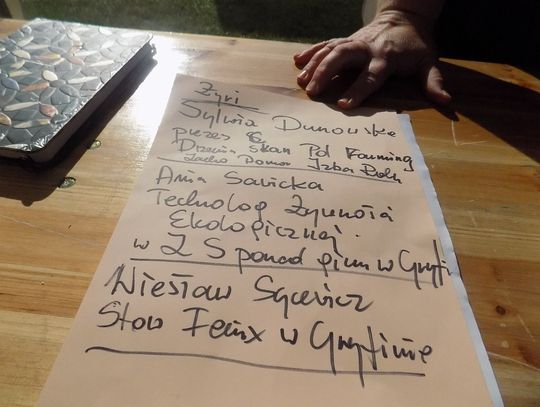 Żyri
Sylwia Dunowska
prezes
Skan Pol Farming
Zacho Pomor Izba Roln
Anna Savicka
Technolog Żywności
Ekologicznej
w Z S ponad gim w Gryfi
Wiesław
Stow Fenix w Gryfinie